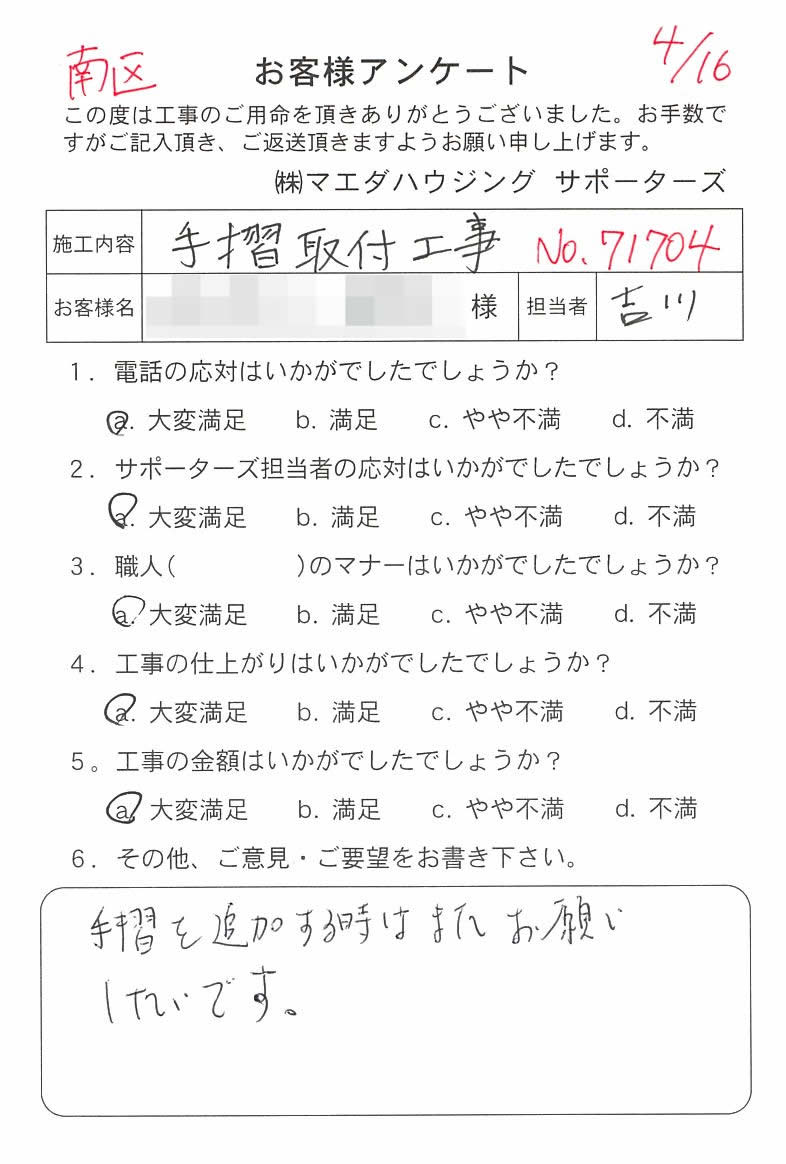 南区
お客様アンケート
4/16
この度は工事のご用命を頂きありがとうございました。お手数で
すがご記入頂き、ご返送頂きますようお願い申し上げます。
㈱マエダハウジング サポーターズ
施工内容 手摺取付工事 No.71704
お客様名 様 担当者 吉川
1. 電話の応対はいかがでしたでしょうか?
a. 大変満足 b. 満足 c. やや不満 d. 不満
2. サポーターズ担当者の応対はいかがでしたでしょうか?
a. 大変満足 b. 満足 c. やや不満 d. 不満
3. 職人( )のマナーはいかがでしたでしょうか?
a. 大変満足 b. 満足 c. やや不満 d. 不満
4. 工事の仕上がりはいかがでしたでしょうか?
a. 大変満足 b. 満足 c. やや不満 d. 不満
5。工事の金額はいかがでしたでしょうか?
a. 大変満足 b. 満足 c. やや不満 d. 不満
6. その他、ご意見・ご要望をお書き下さい。
手摺を追加する時はまたお願い
したいです。